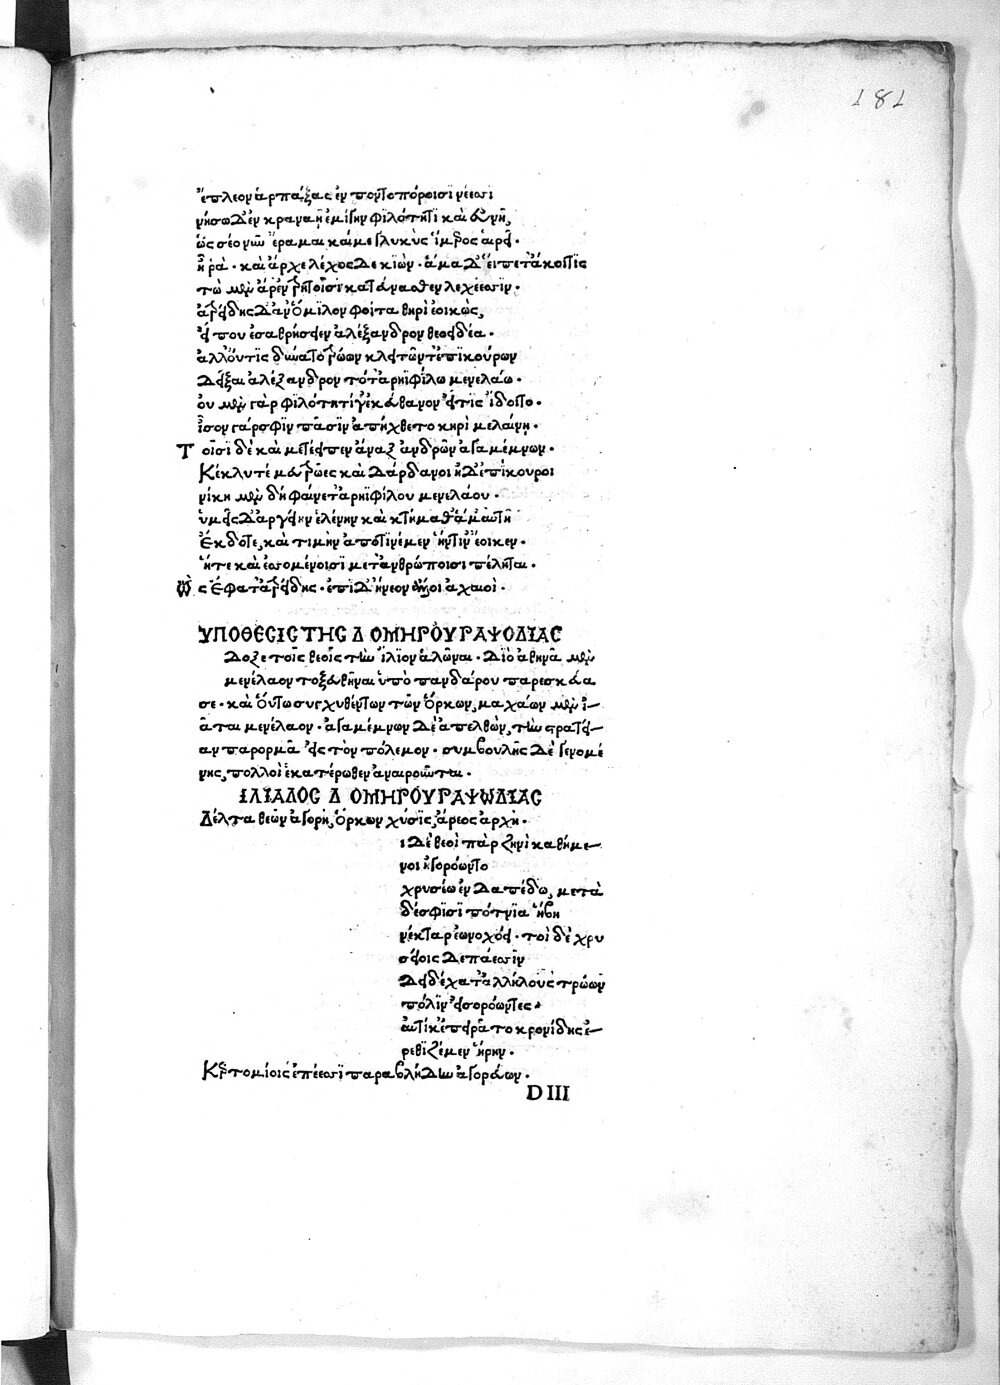 181
ἔπλεον ἁρπάξας ἐν ποντοπόροισϊ νέεσσι
νήσω δ'ἐν κραναῆ ἐμίγην φϊλότητϊ καὶ ἐυνῆ,
ὡς σέο νῦν ἔραμαι καί με γλυκὺς ἵμερος αἱρεῖ.
ἦ ῥὰ. καὶ ἄρχε λέχος δε κϊών. ἅμα δ' εἵπετ' ἄκοιτϊς
τὼ μὲν ἄρ' ἐν τρητοῖσϊ κατέυνασθεν λεχέεσσϊν.
ἀτρείδης δ'ἀν' ὅμϊλον φοίτα θηρὶ ἐοικὼς,
εἴ που ἐσαθρήσειεν ἀλέξανδρον θεοειδέα.
ἀλλ' ὄυτϊς δύνατο τρώων κλειτῶν τ' ἐπϊκούρων
δεῖξαι ἀλέξανδρον τότ' ἀρηϊφίλω μενελάω.
ὀυ μὲν γὰρ φϊλότητί γ' ἐκέυθανον εἴ τϊς ἴδοιτο.
ἶσον γάρ σφϊν πᾶσϊν ἀπήχθετο κηρὶ μελαίνη.
Τοῖσϊ δὲ καὶ μετέειπεν ἄναξ ἀνδρῶν ἀγαμέμνων.
Κέκλυτέ μευ τρῶες καὶ δάρδανοι ἠδ' ἐπίκουροι
νίκη μὲν δὴ φαίνετ' ἀρηϊφίλου μενελάου.
ὑμεῖς δ'ἀργείην ἑλένην καὶ κτήμαθ' ἅμ' ἀυτῆ
ἔκδοτε, καὶ τιμὴν ἀποτϊνέμεν ἥντϊν' ἔοικεν.
ἥτε καὶ ἐσσομένοισϊ μετ' ἀνθρώποισϊ πέληται.
Ὣς ἔφατ' ἀτρείδης. ἐπὶ δ' ἤνεον ἄλλοι ἀχαιοὶ.
ΥΠΟΘΕΣΙΣ ΤΗΣ Δ ΟΜΗΡΟΥ ΡΑΨΟΔΙΑΣ
Δοξε τοῖς θεοῖς τὴν ἴλϊον ἁλῶναι. Διὸ ἀθηνᾶ μὲν
μενέλαον τοξευθῆναι ὑπὸ πανδάρου παρεσκέυα
σε. καὶ ὅυτω συγχυθέντων τῶν ὅρκων, μαχάων μὲν ἰ—
ᾶται μενέλαον. ἀγαμέμνων δὲ ἀπελθὼν, τὴν στρατεί—
αν παρορμᾶ εἰς τὸν πόλεμον. συμβουλῆς δὲ γενομέ
νης, πολλοὶ ἑκατέρωθεν ἀναιροῦνται.
ΙΛΙΑΔΟΣ Δ ΟΜΗΡΟΥ ΡΑΨΩΔΙΑΣ
Δέλτα θεῶν ἀγορὴ, ὅρκων χύσϊς, ἄρεος ἀρχὴ.
ι δὲ θεοὶ πὰρ ζηνὶ καθήμε—
νοι ἠγορόωντο
χρυσέω ἐν δαπέδω, μετὰ
δέ σφϊσϊ πότνϊα ἥβη
νέκταρ ἐωνοχόει. τοὶ δὲ χρυ
σέοις δεπάεσσϊν
Δειδέχατ' ἀλλήλους τρώων
πόλϊν εἰσορόωντες.
ἀυτίκ' ἐπειρᾶτο κρονίδης ἐ—
ρεθϊζέμεν ἥρην.
Κερτομίοις ἐπέεσσϊ παραβλήδην ἀγορέυων.
D III